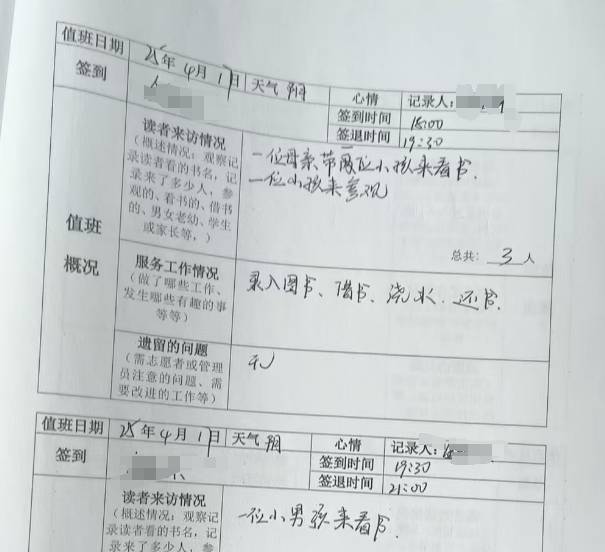 值班日期 25年4月17日 天气 阴 心情 记录人：
签到 签到时间 18:00
签退时间 19:30
值班概况
读者来访情况
（概述情况：观察记
录读者看的书名，记
录来了多少人，参
观的、看书的、借书
的、男女老幼、学生
或家长等，）
一位母亲带两位小孩来看书.
一位小孩来参观
总共：3人
服务工作情况
（做了哪些工作、
发生哪些有趣的事
等等）
录入图书、借书、浇水、还书.
遗留的问题
（需志愿者或管理
员注意的问题、需
要改进的工作等）
无
值班日期 25年4月17日 天气 阴 心情 记录人：
签到 签到时间 19:30
签退时间 21:00
读者来访情况
（概述情况：观察记
录读者看的书名，记
录来了多少人，参
一位小男孩来看书.